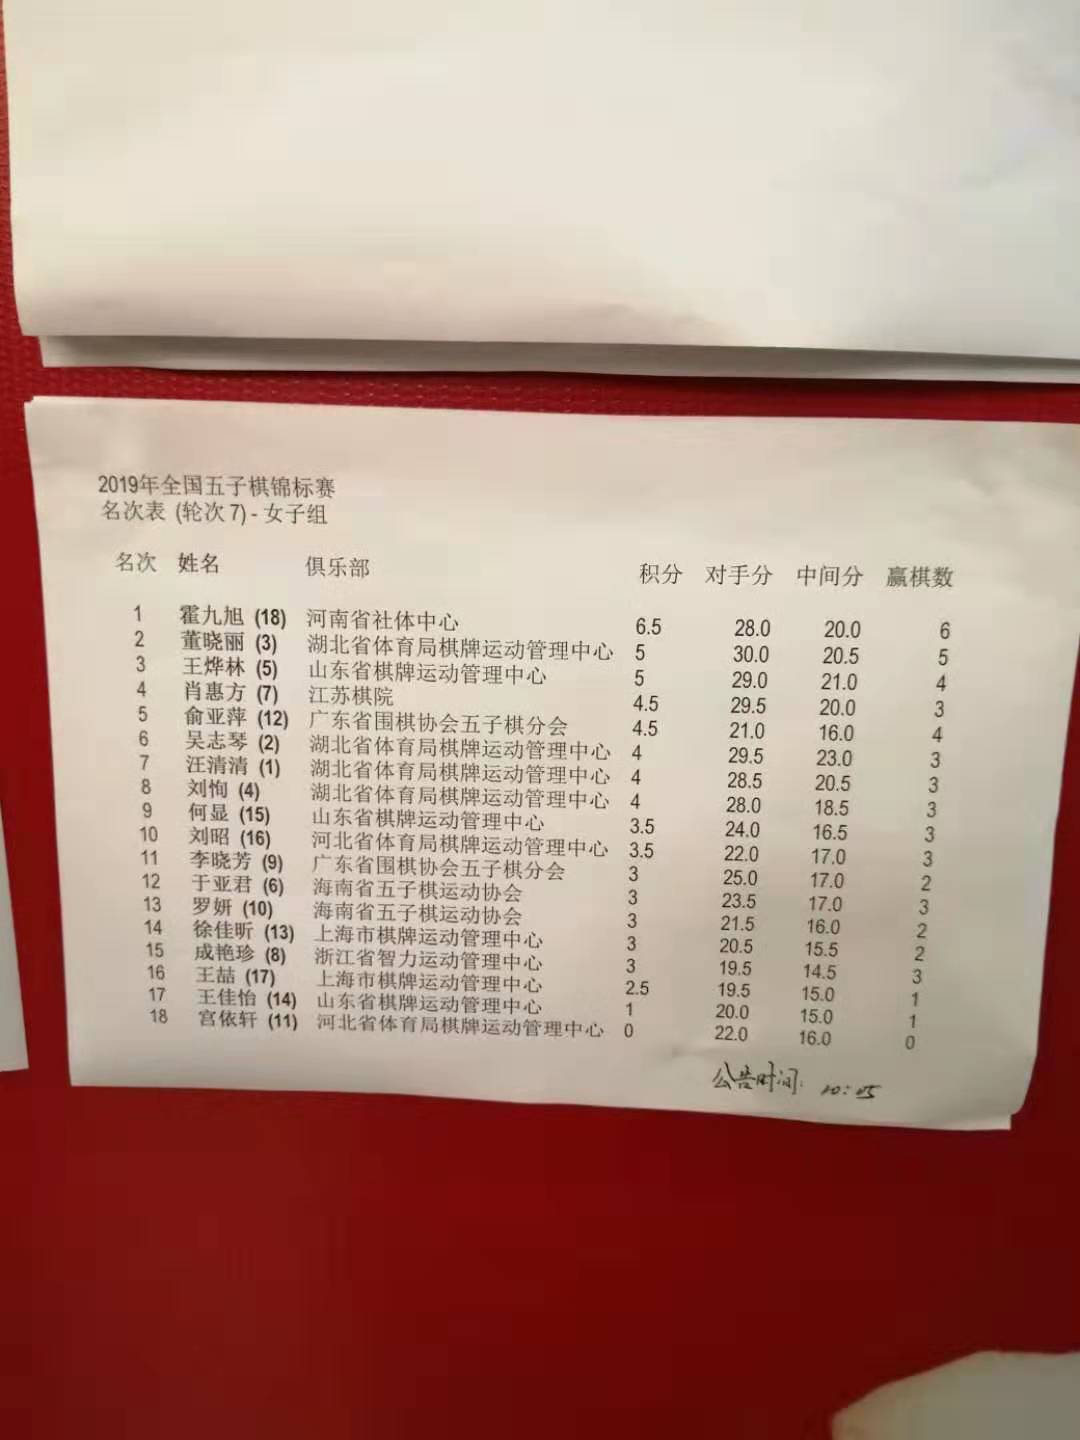 2019年全国五子棋锦标赛
名次表 (轮次 7) - 女子组
名次 姓名 俱乐部 积分 对手分 中间分 赢棋数
1 霍九旭 (18) 河南省社体中心 6.5 28.0 20.0 6
2 董晓丽 (3) 湖北省体育局棋牌运动管理中心 5 30.0 20.5 5
3 王烨林 (5) 山东省棋牌运动管理中心 5 29.0 21.0 4
4 肖惠方 (7) 江苏棋院 4.5 29.5 20.0 3
5 俞亚萍 (12) 广东省围棋协会五子棋分会 4.5 21.0 16.0 4
6 吴志琴 (2) 湖北省体育局棋牌运动管理中心 4 29.5 23.0 3
7 汪清清 (1) 湖北省体育局棋牌运动管理中心 4 28.5 20.5 3
8 刘恂 (4) 湖北省体育局棋牌运动管理中心 4 28.0 18.5 3
9 何显 (15) 山东省棋牌运动管理中心 3.5 24.0 16.5 3
10 刘昭 (16) 河北省体育局棋牌运动管理中心 3.5 22.0 17.0 3
11 李晓芳 (9) 广东省围棋协会五子棋分会 3 25.0 17.0 2
12 于亚君 (6) 海南省五子棋运动协会 3 23.5 17.0 3
13 罗妍 (10) 海南省五子棋运动协会 3 21.5 16.0 2
14 徐佳昕 (13) 上海市棋牌运动管理中心 3 20.5 15.5 2
15 成艳珍 (8) 浙江省智力运动管理中心 3 19.5 14.5 3
16 王喆 (17) 上海市棋牌运动管理中心 2.5 19.5 15.0 1
17 王佳怡 (14) 山东省棋牌运动管理中心 1 20.0 15.0 1
18 宫依轩 (11) 河北省体育局棋牌运动管理中心 0 22.0 16.0 0
公告时间: